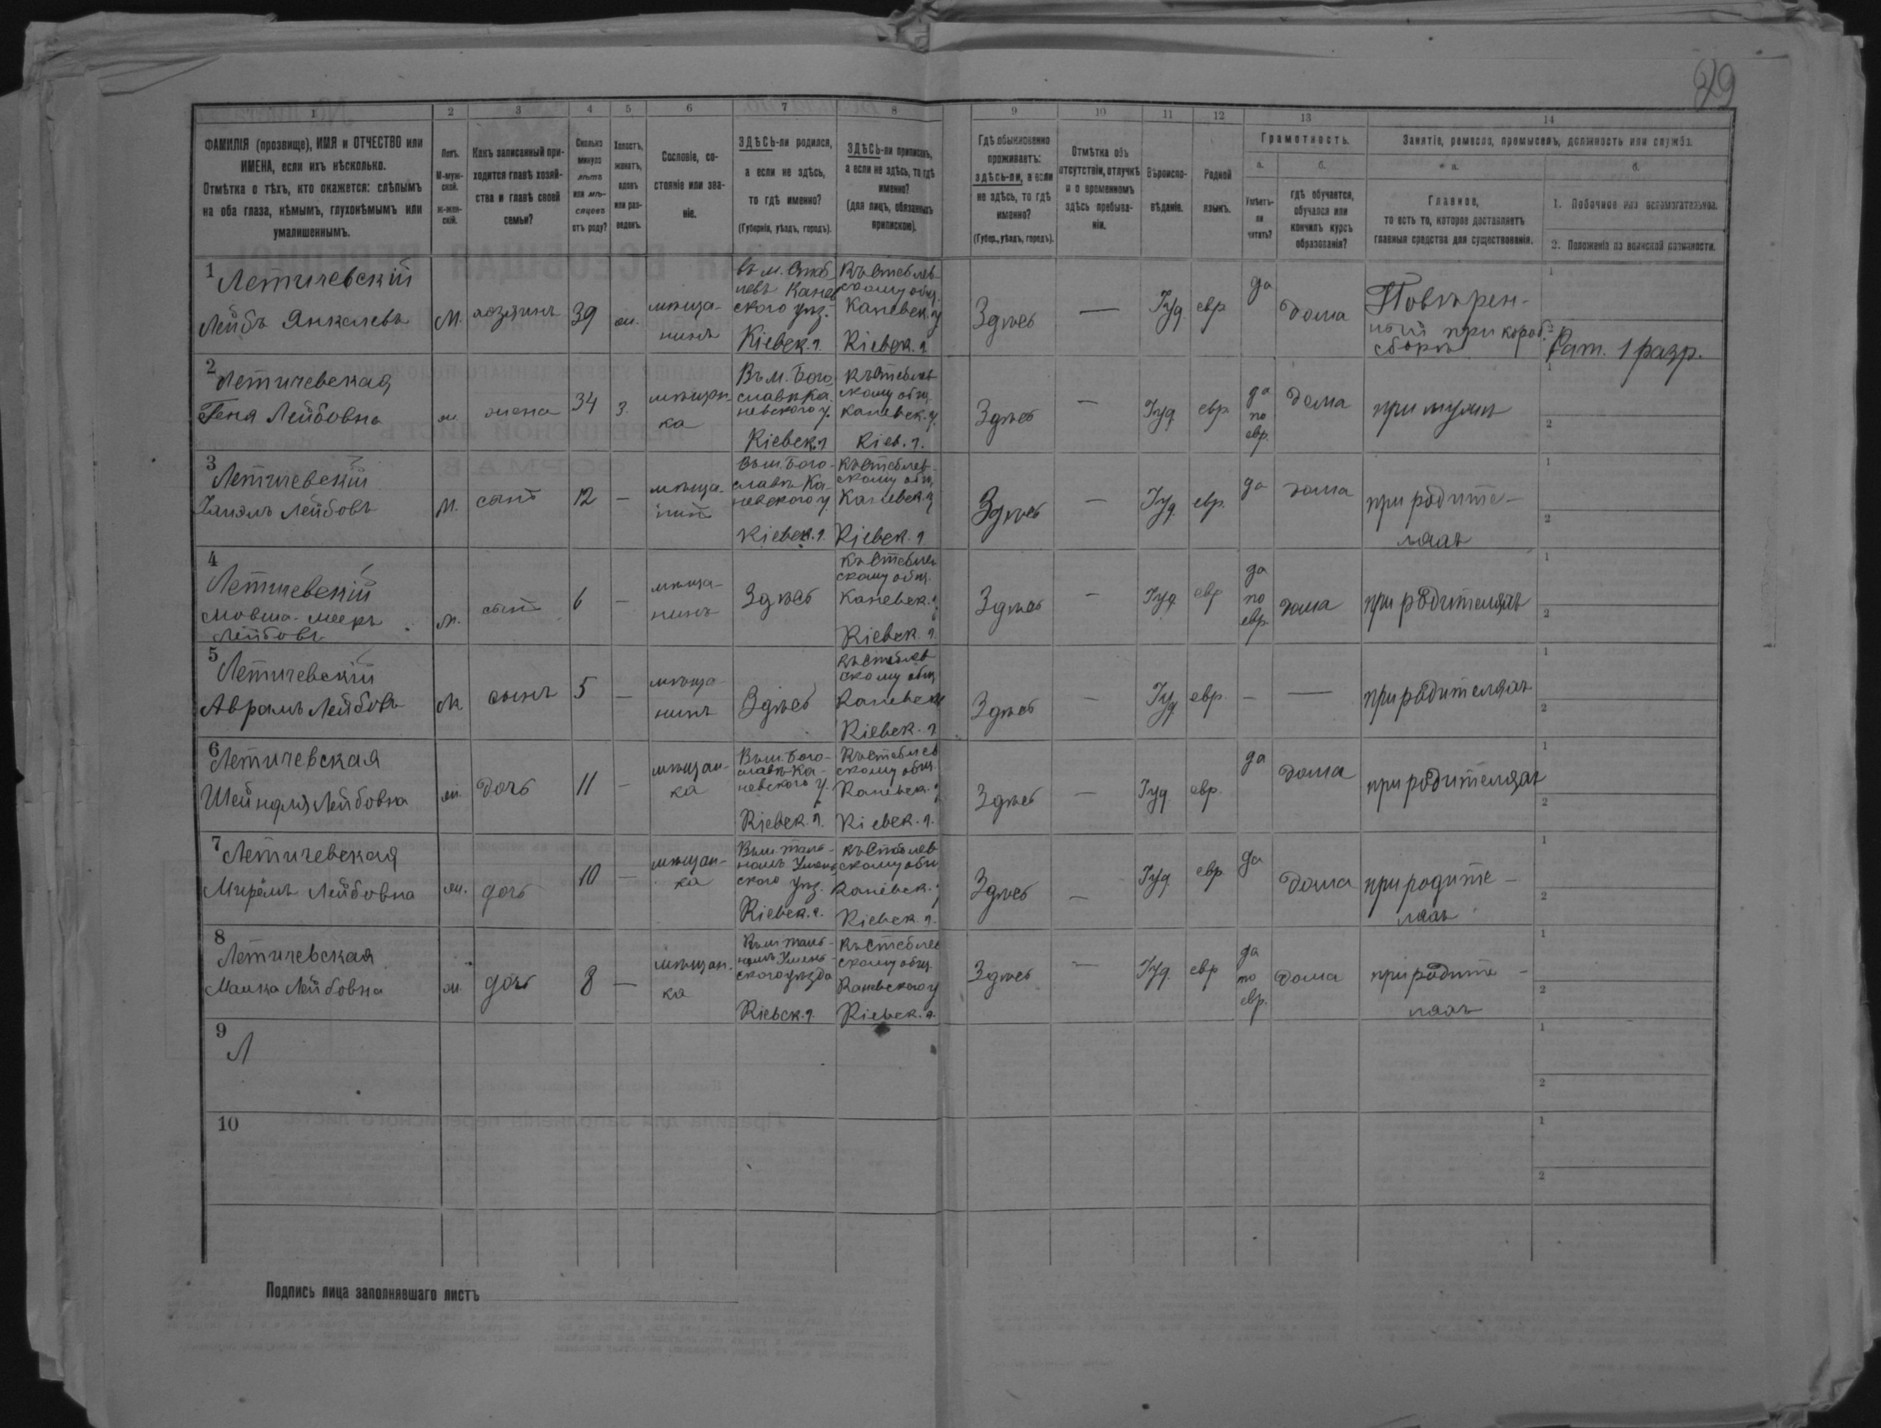 29
1 2 3 4 5 6 7 8 9 10 11 12 13 14
ФАМИЛІЯ (прозвище), ИМЯ и ОТЧЕСТВО или
ИМЕНА, если ихъ нѣсколько.
Отмѣтка о тѣхъ, кто окажется: слѣпымъ
на оба глаза, нѣмымъ, глухонѣмымъ или
умалишеннымъ.
Полъ.
М-муж-
ской.
Ж-жен-
скій.
Какъ записанный при-
ходится главѣ хозяй-
ства и главѣ своей
семьи?
Сколько
минуло
лѣтъ
или мѣ-
сяцевъ
отъ роду?
Холостъ,
женатъ,
вдовъ
или раз-
веденъ.
Сословіе, со-
стояніе или зва-
ніе.
ЗДѢСЬ-ли родился,
а если не здѣсь,
то гдѣ именно?
(Губернія, уѣздъ, городъ).
ЗДѢСЬ-ли приписанъ,
а если не здѣсь, то гдѣ
именно?
(для лицъ, обязанныхъ
припискою).
Гдѣ обыкновенно
проживаетъ:
здѣсь-ли, а если
не здѣсь, то гдѣ
именно?
(Губер., уѣздъ, городъ).
Отмѣтка объ
отсутствіи, отлучкѣ
и о временномъ
здѣсь пребыва-
ніи.
Вѣроиспо-
вѣданіе.
Родной
языкъ.
Грамотность.
а.
Умѣетъ-
ли
читать?
б.
гдѣ обучается,
обучался или
кончилъ курсъ
образованія?
Занятіе, ремесло, промыселъ, должность или служба.
а.
Главное,
то есть то, которое доставляетъ
главныя средства для существованія.
б.
1. Побочное или вспомогательное.
2. Положеніе по воинской повинности.
1 Летичевскій
Лейбъ Янкелевъ
М. хозяинъ 39 ж.
мѣща-
нинъ
Въ м. Стеб
левѣ Канев
ского уѣз.
Кіевск. г.
Къ Стеблев
скому общ.
Каневск. у
Кіевск. г
Здѣсь — Іуд евр да дома
Повѣрен-
ный при короб.
сборѣ
1
2
Рат. 1 разр.
2 Летичевская
Геня Лейбовна
ж жена 34 з
мѣщан
ка
Въ м. Бого
славѣ Ка
невского у.
Кіевск г
Къ Стеблев
скому общ
Каневск. у.
Кіев. г.
Здѣсь — Іуд евр
да
по
евр.
дома при мужѣ
1
2
3 Летичевскій
Хаиэль Лейбовъ
М. сынъ 12 —
мѣща-
нинъ
Въ м. Бого-
славѣ Ка-
невского у.
Кіевск. г.
Къ Стеблев-
скому общ
Каневск. у
Кіевск. г
Здѣсь — Іуд евр. да дома
при родите-
ляхъ
1
2
4 Летичевскій
Мовша-Меер
Лейбовъ
М. сынъ 6 —
мѣща-
нинъ
Здѣсь
Къ Стеблев
скому общ.
Каневск. у
Кіевск. г.
Здѣсь — Іуд евр
да
по
евр
дома при родителяхъ
1
2
5 Летичевскій
Аврамъ Лейбовъ
М. сынъ 5 —
мѣща-
нинъ
Здѣсь
Къ Стеблев
скому общ
Каневск у
Кіевск. г
Здѣсь — Іуд евр. — — при родителяхъ
1
2
6 Летичевская
Шейндля Лейбовна
ж. дочь 11 —
мѣщан-
ка
Въ м. Бого-
славѣ Ка-
невского у
Кіевск. г.
Къ Стеблев
скому общ.
Каневск. у
Кіевск. г.
Здѣсь — Іуд евр. да дома при родителяхъ
1
2
7 Летичевская
Миремъ Лейбовна
ж. дочь 10 —
мѣщан-
ка
Въ м. Таль-
номъ Уман
ского уѣз.
Кіевск. г.
Къ Стеблев
скому общ
Каневск. у
Кіевск. г.
Здѣсь — Іуд. евр да дома
при родите-
ляхъ
1
2
8 Летичевская
Малка Лейбовна
ж. дочь 8 —
мѣщан.
ка
Въ м. Таль-
номъ Уман-
ского уѣзда
Кіевск. г.
Къ Стеблев
скому общ.
Каневского у
Кіевск. г.
Здѣсь — Іуд. евр
да
по
евр.
дома
при родите-
ляхъ
1
2
9 Л
1
2
10
1
2
Подпись лица заполнявшаго листъ